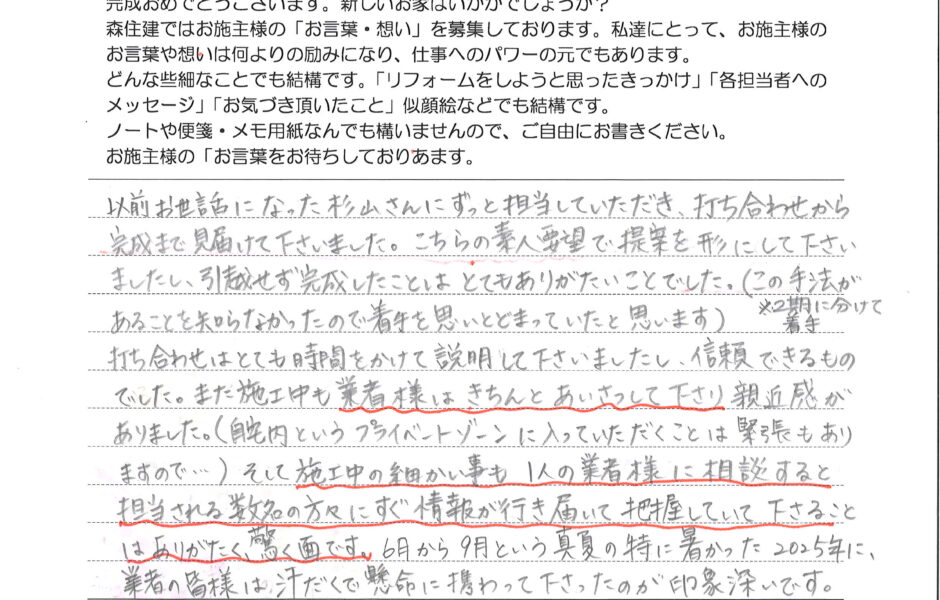 完成おめでとうございます。新しいお家はいかがでしょうか?
森住建ではお施主様の「お言葉・想い」を募集しております。私達にとって、お施主様の
お言葉や想いは何よりの励みになり、仕事へのパワーの元でもあります。
どんな些細なことでも結構です。「リフォームをしようと思ったきっかけ」「各担当者への
メッセージ」「お気づき頂いたこと」似顔絵などでも結構です。
ノートや便箋・メモ用紙なんでも構いませんので、ご自由にお書きください。
お施主様の「お言葉をお待ちしておりあます。
以前お世話になった杉山さんにずっと担当していただき、打ち合わせから
完成まで見届けて下さいました。こちらの素人要望で提案を形にして下さい
ましたし、引越せず完成したことはとてもありがたいことでした。(この手法が
※2期に分けて
着手
あることを知らなかったので着手を思いとどまっていたと思います)
打ち合わせはとても時間をかけて説明して下さいましたし、信頼できるもの
でした。また施工中も業者様はきちんとあいさつして下さり親近感が
ありました。(自宅内というプライベートゾーンに入っていただくことは緊張もあり
ますので…)そして施工中の細かい事も1人の業者様に相談すると
担当される数名の方々にすぐ情報が行き届いて把握していて下さること
はありがたく、驚く面です。6月から9月という真夏の特に暑かった2025年に、
業者の皆様は汗だくで懸命に携わって下さったのが印象深いです。